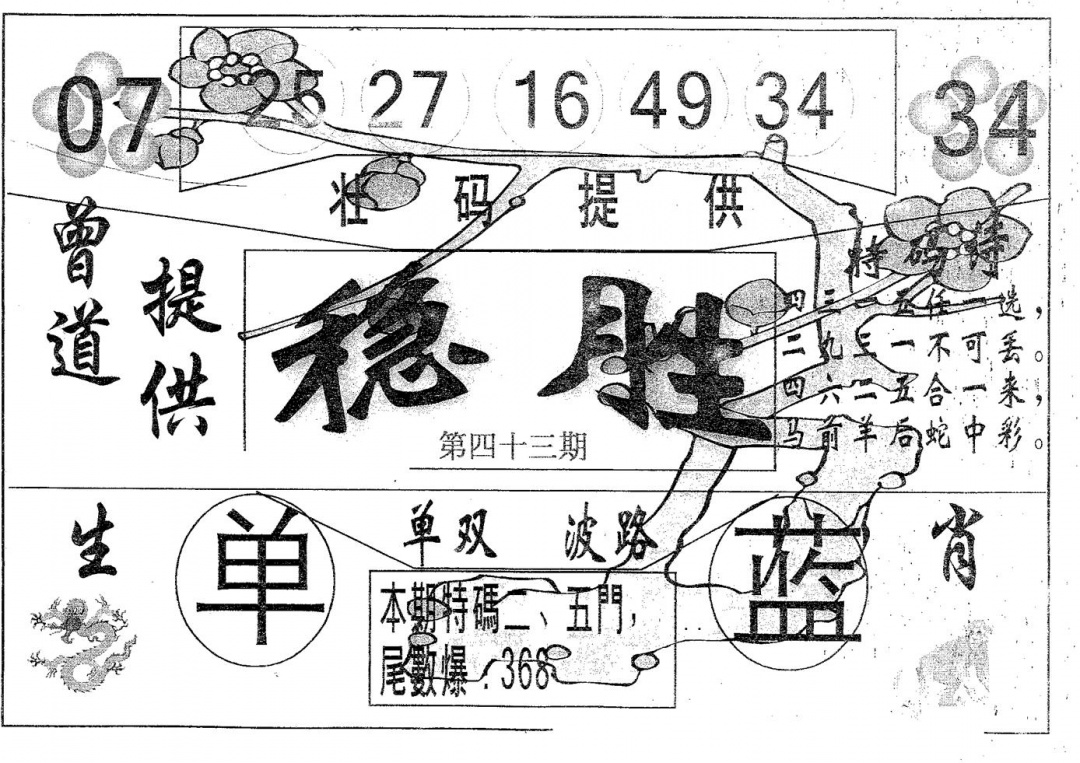 07 25 27 16 49 34 34
壮码提供
曾道
提供
稳胜
第四十三期
特码诗
四三一五任一选，
二九三一不可丢。
四六二五合一来，
马前羊后蛇中彩。
生
单
单双 波路
蓝
肖
本期特碼二、五門，
尾數爆：368